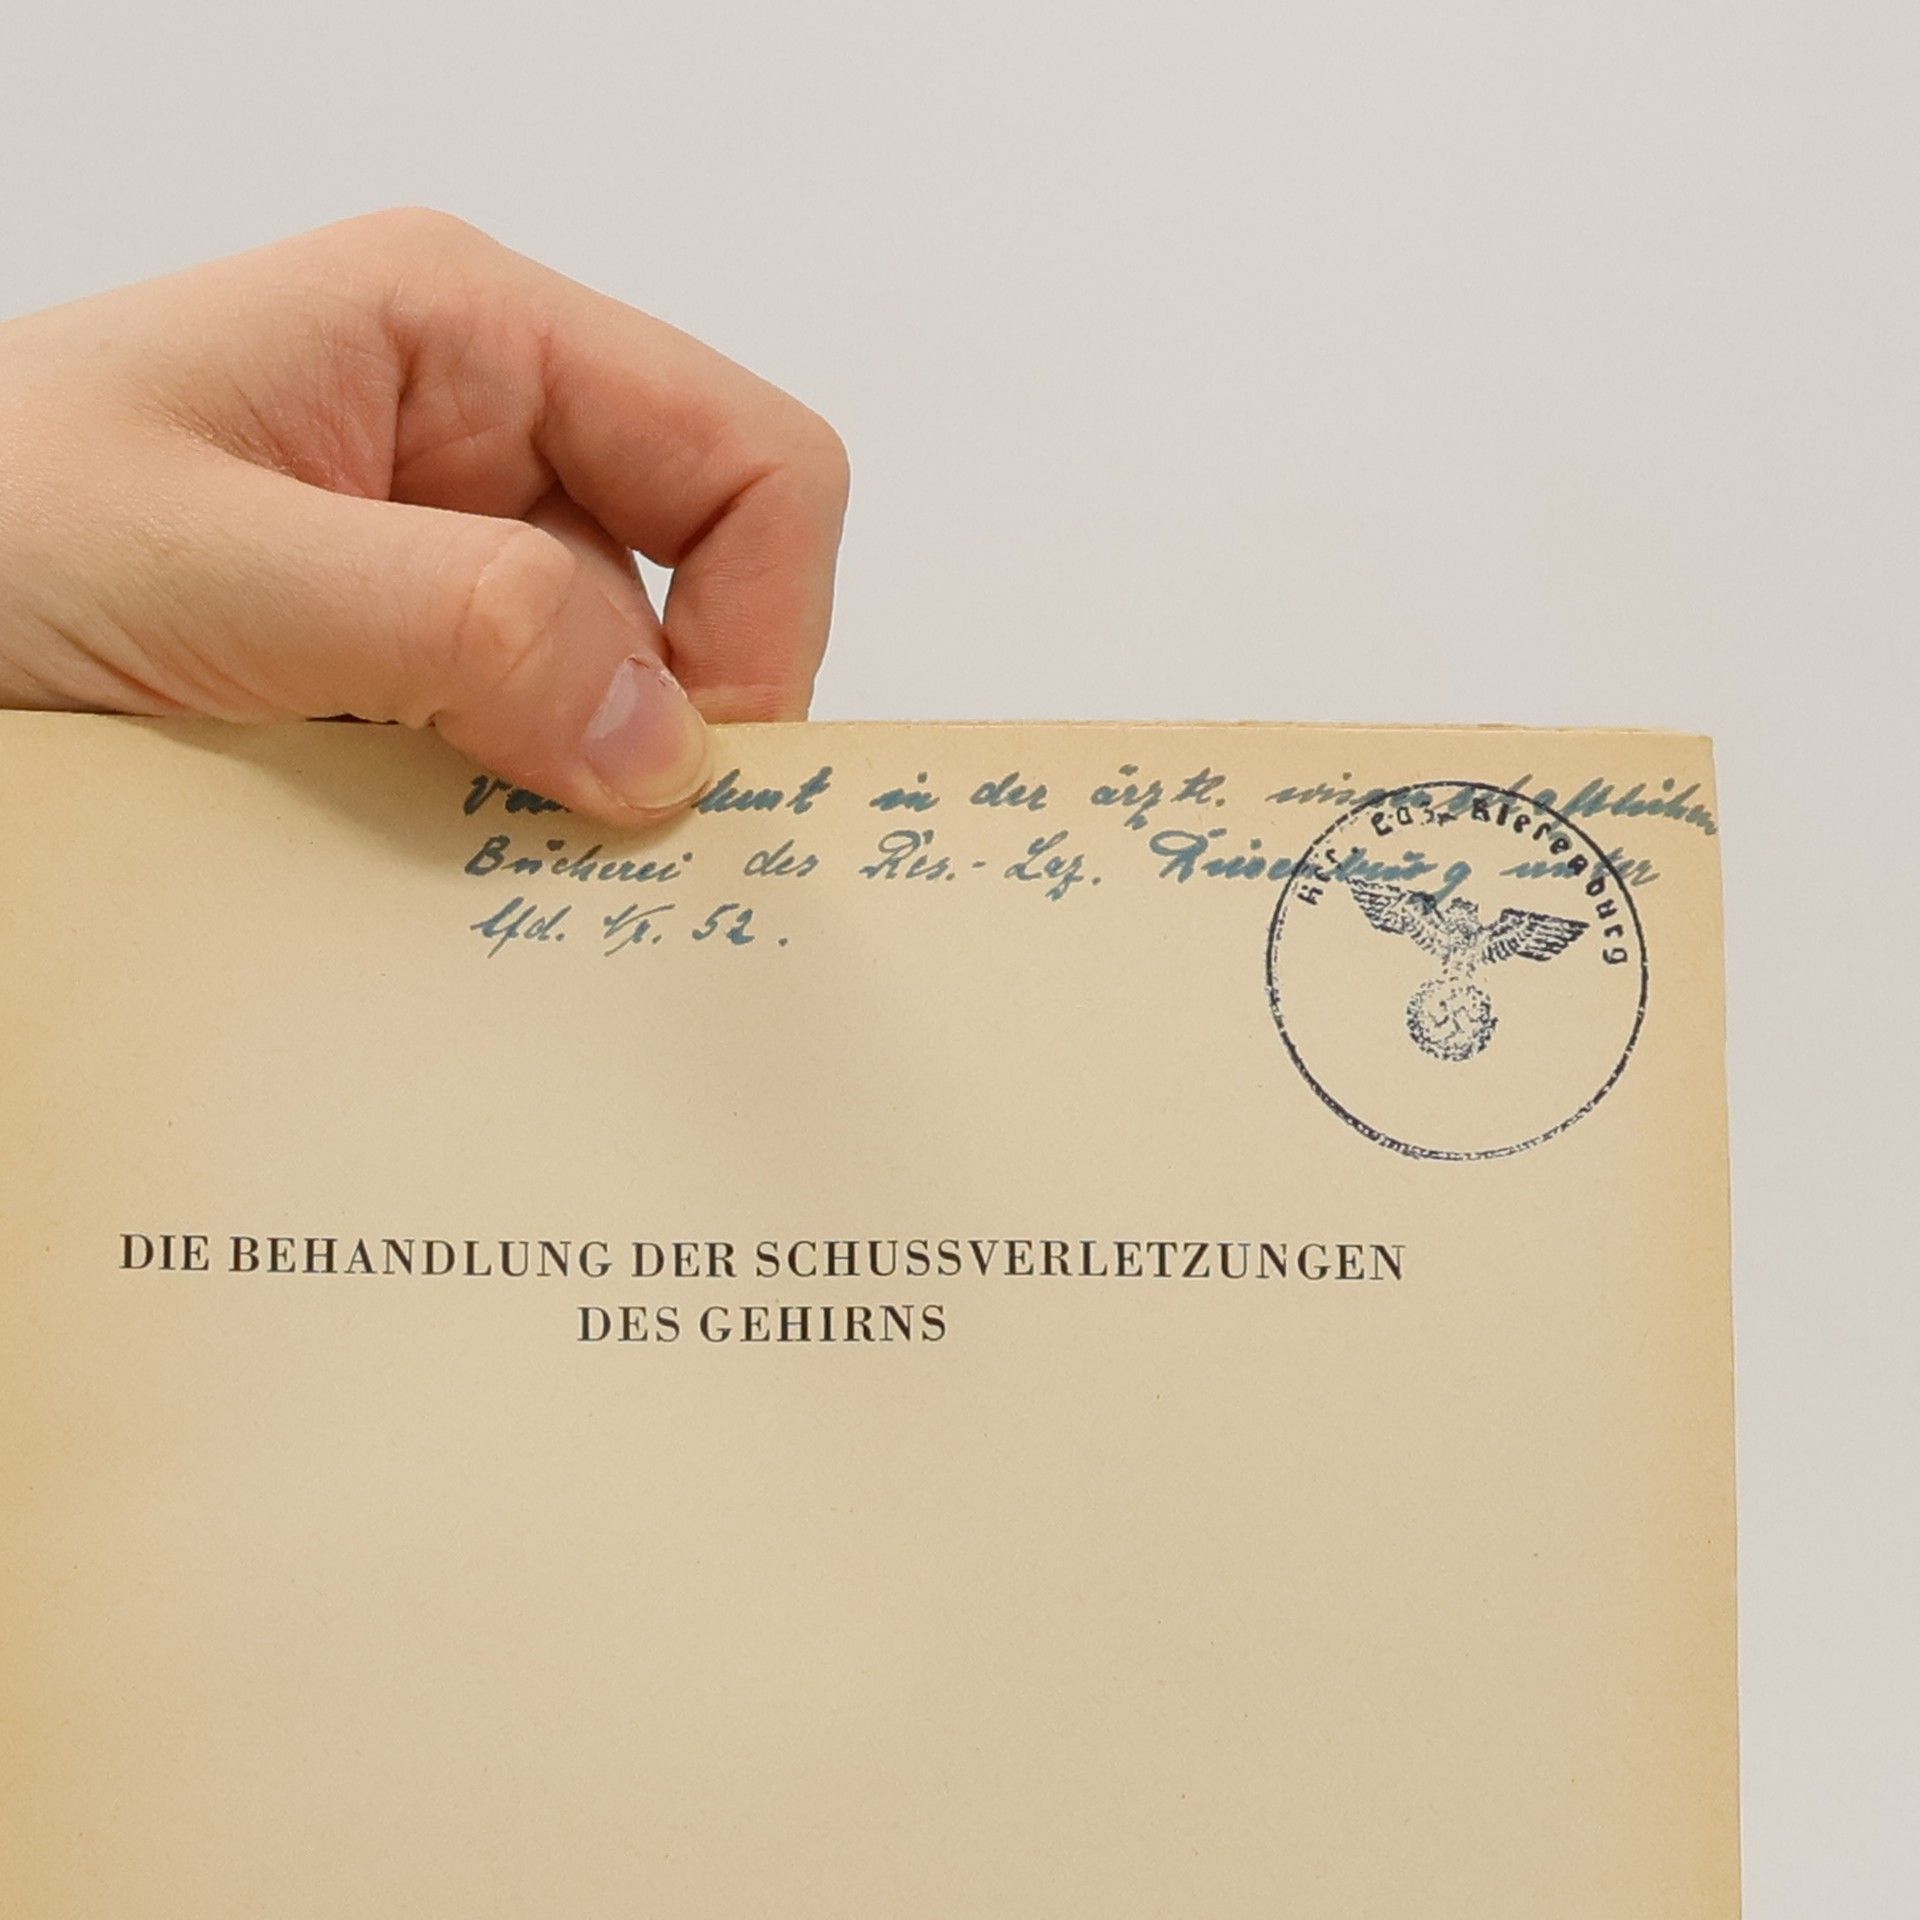 in der ärztl. wissenschaftlichen
Bücherei des Res.-Laz. unter
lfd. Nr. 52.
DIE BEHANDLUNG DER SCHUSSVERLETZUNGEN
DES GEHIRNS